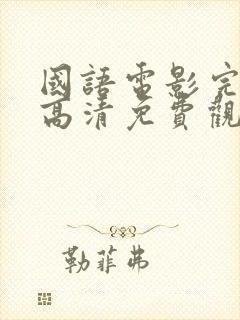 國語電影完
高清免費觀
勒菲弗